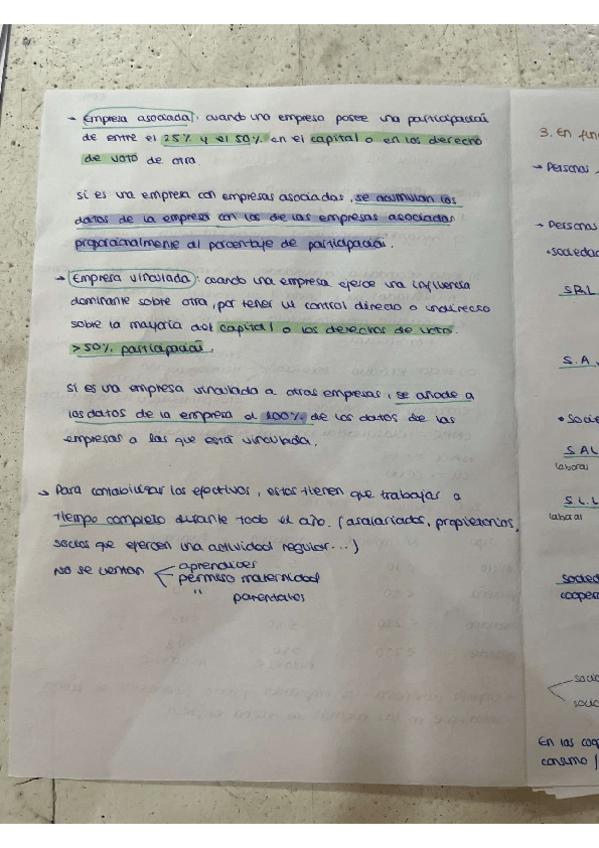 → Empresa asociada: cuando una empresa posee una participación
de entre el 25% y el 50% en el capital o en los derecho
de voto de otra.
si es una empresa con empresas asociadas, se acumulan los
datos de la empresa con los de las empresas asociadas
proporcionalmente al porcentaje de participación.
→ Empresa vinculada: cuando una empresa ejerce una influencia
dominante sobre otra, por tener un control directo o indirecto
sobre la mayoría del capital o los derechos de voto.
>50% participación.
si es una empresa vinculada a otras empresas, se añade a
los datos de la empresa el 100% de los datos de las
empresas a las que está vinculada.
→ Para contabilizar los efectivos, estos tienen que trabajar a
tiempo completo durante todo el año. (asalariados, propietarios,
socios que ejercen una actividad regular...)
NO se cuentan aprendices
permiso maternidad
" parentales
3. En fun
→ Personas
→ Personas
• sociedad
S.R.L
S.A.
• Socie
S.A.L
laboral
S.L.L
laboral
socied
cooper
socio
socio
En las coop
consumo /